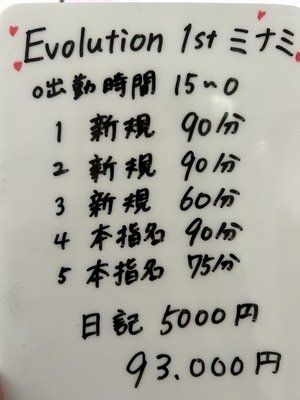 Evolution 1st ミナミ
○出勤時間 15~0
1 新規 90分
2 新規 90分
3 新規 60分
4 本指名 90分
5 本指名 75分
日記 5000円
93.000円